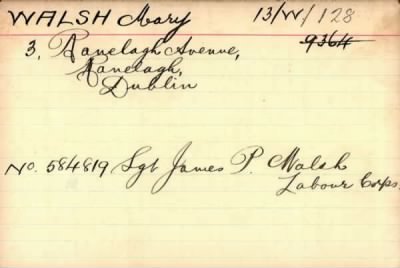 WALSH Mary 13/W/128
9364
3, Ranelagh Avenue,
Ranelagh,
Dublin
No. 584819 Sgt James P. Walsh
Labour Corps.